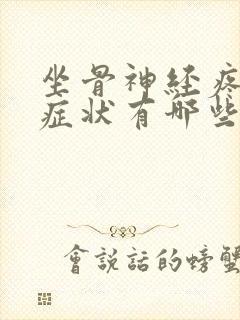 坐骨神经疼
症状有哪些
會說話的螃蟹